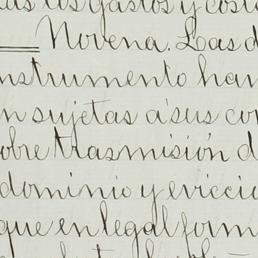 los gastos y cost
Novena. Las d
nstrumento han
n sujetas a sus con
obre trasmisión d
dominio y evicció
que en legal form